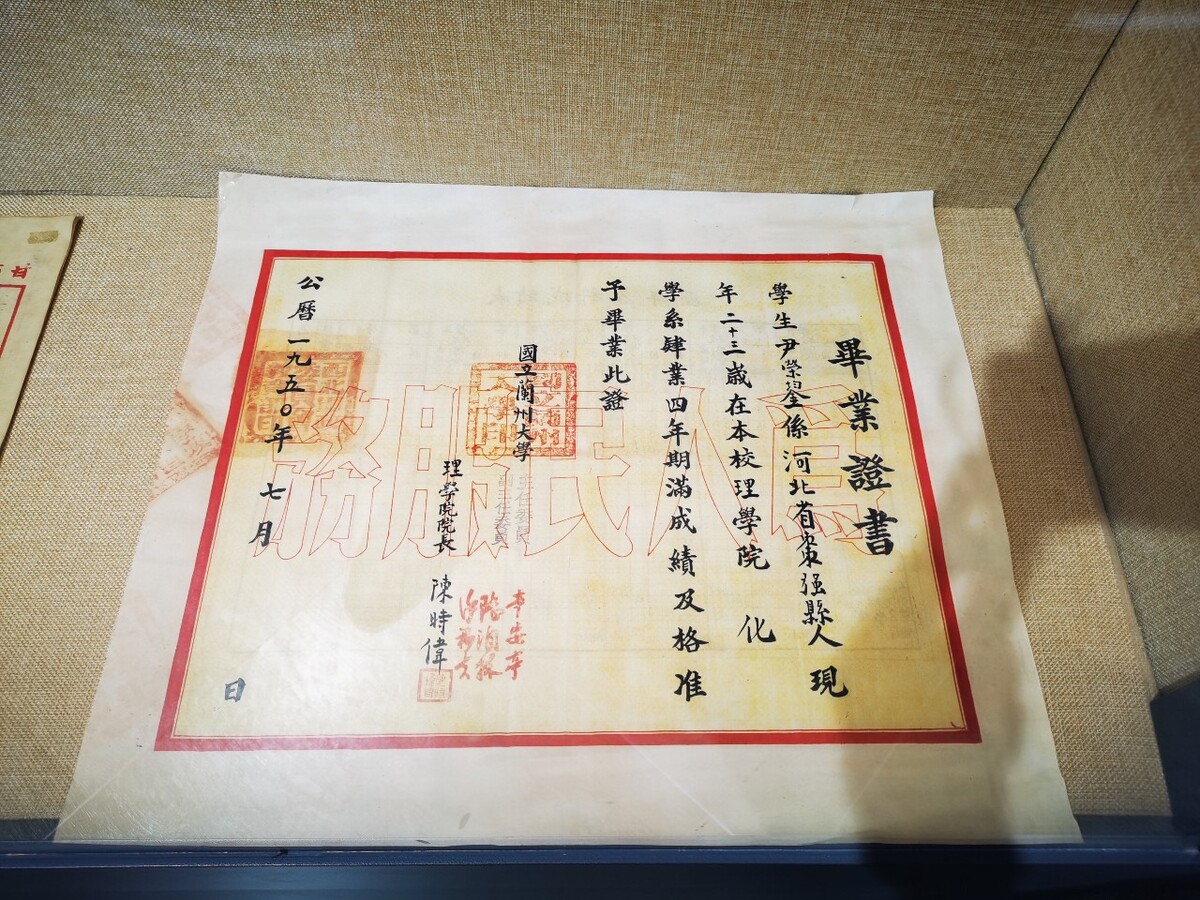 畢業證書
學生尹榮鋆係河北省棗强縣人現
年二十三嵗在本校理學院 化
學系肄業四年期滿成績及格准
予畢業此證
國立蘭州大學
主任委員 辛安亭
副主任委員
理學院院長 陳時偉
公曆一九五〇年七月 日
爲人民服務